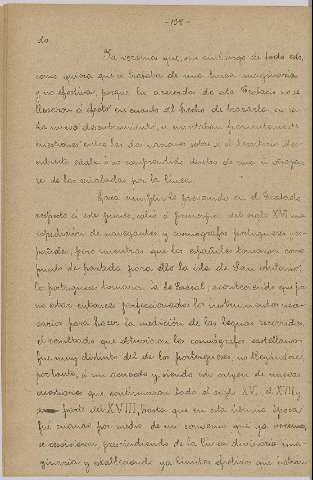 -138-
do
Ya veremos que, sin embargo de todo esto,
como quiera que se trataba de una linea imaginaria
y no efectiva, porque los acuerdos de este Tratado no se
llevaron á efecto en cuanto al hecho de trazarla, en ca-
da nuevo descubrimiento, se suscitaban frecuentemente
cuestiones entre las dos naciones sobre si el territorio des-
cubierto estaba ó no comprendido dentro de una ú otra par-
te de las señaladas por la linea.
Para cumplir lo prevenido en el Tratado
respecto á este punto, salió á principios del siglo XVI una
expedición de navegantes y cosmógrafos portugueses y es-
pañoles, pero mientras que los españoles tomaron como
punto de partida para ello la isla de San Antonio,
los portugueses tomaron la de Boavista, aconteciendo que por
no estar entonces perfeccionados los instrumentos nece-
sarios para hacer la medición de las leguas recorridas,
el resultado que obtuvieron los cosmógrafos castellanos
fué muy distinto del de los portugueses no llegándose
por tanto, á un acuerdo y siendo esto origen de nuevas
cuestiones que continuaron todo el siglo XVI, el XVII y
parte del XVIII, hasta que en esta última época
fué cuando por medio de un convenio que ya veremos,
se resolvieron, prescindiendo de la linea divisoria ima-
ginaria y estableciendo ya limites efectivos que